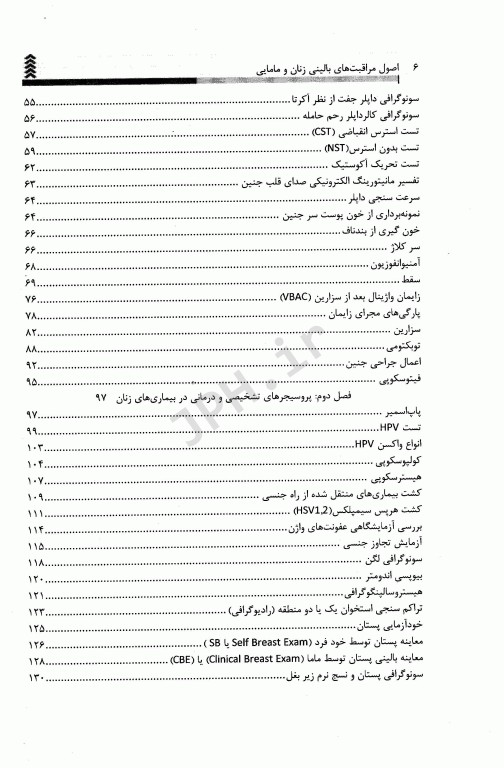 ۶ اصول مراقبت‌های بالینی زنان و مامایی
سونوگرافی داپلر جفت از نظر آکرتا ۵۵
سونوگرافی کالرداپلر رحم حامله ۵۶
تست استرس انقباضی (CST) ۵۷
تست بدون استرس(NST) ۵۹
تست تحریک آکوستیک ۶۲
تفسیر مانیتورینگ الکترونیکی صدای قلب جنین ۶۳
سرعت سنجی داپلر ۶۴
نمونه‌برداری از خون پوست سر جنین ۶۴
خون گیری از بندناف ۶۶
سر کلاژ ۶۶
آمنیوانفوزیون ۶۸
سقط ۶۹
زایمان واژینال بعد از سزارین (VBAC) ۷۶
پارگی‌های مجرای زایمان ۷۸
سزارین ۸۲
توبکتومی ۸۸
اعمال جراحی جنین ۹۲
فیتوسکوپی ۹۵
فصل دوم: پروسیجرهای تشخیصی و درمانی در بیماری‌های زنان ۹۷
پاپ‌اسمیر ۹۷
تست HPV ۹۹
انواع واکسن HPV ۱۰۳
کولپوسکوپی ۱۰۴
هیسترسکوپی ۱۰۷
کشت بیماری‌های منتقل شده از راه جنسی ۱۰۹
کشت هرپس سیمپلکس(HSV1,2) ۱۱۱
بررسی آزمایشگاهی عفونت‌های واژن ۱۱۴
آزمایش تجاوز جنسی ۱۱۵
سونوگرافی لگن ۱۱۸
بیوپسی اندومتر ۱۲۰
هیستروسالپنگوگرافی ۱۲۱
تراکم سنجی استخوان یک یا دو منطقه (رادیوگرافی) ۱۲۳
خودآزمایی پستان ۱۲۵
معاینه پستان توسط خود فرد (Self Breast Exam یا SB) ۱۲۶
معاینه بالینی پستان توسط ماما (Clinical Breast Exam) یا (CBE) ۱۲۸
سونوگرافی پستان و نسج نرم زیر بغل ۱۳۰
JPH.ir